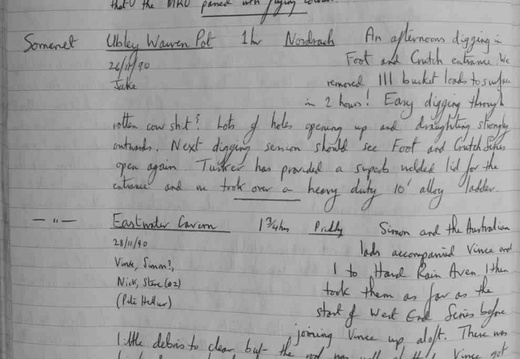 that the MRO passed with flying colours.
Somerset Ubley Warren Pot 1 hr Nordrach An afternoons digging in
26/11/90 Foot and Crutch entrance. We
Jake removed 111 bucket loads to surface
in 2 hours! Easy digging through
rotten cow shit! Lots of holes opening up and draughting strongly
outwards. Next digging session should see Foot and Crutch Series
open again. Tusker has provided a superb welded lid for the
entrance and we took over a heavy duty 10' alloy ladder.
— " — Eastwater Cavern 1 3/4 hrs Priddy Simon and the Australian
28/11/90 lads accompanied Vince and
Vince, Simon?, I to Hard Rain Aven. I then
Nick, Steve (oz) took them as far as the
(Pete Hellier) start of West End Series before
joining Vince up aloft. There was
little debris to clear but the
Vince got